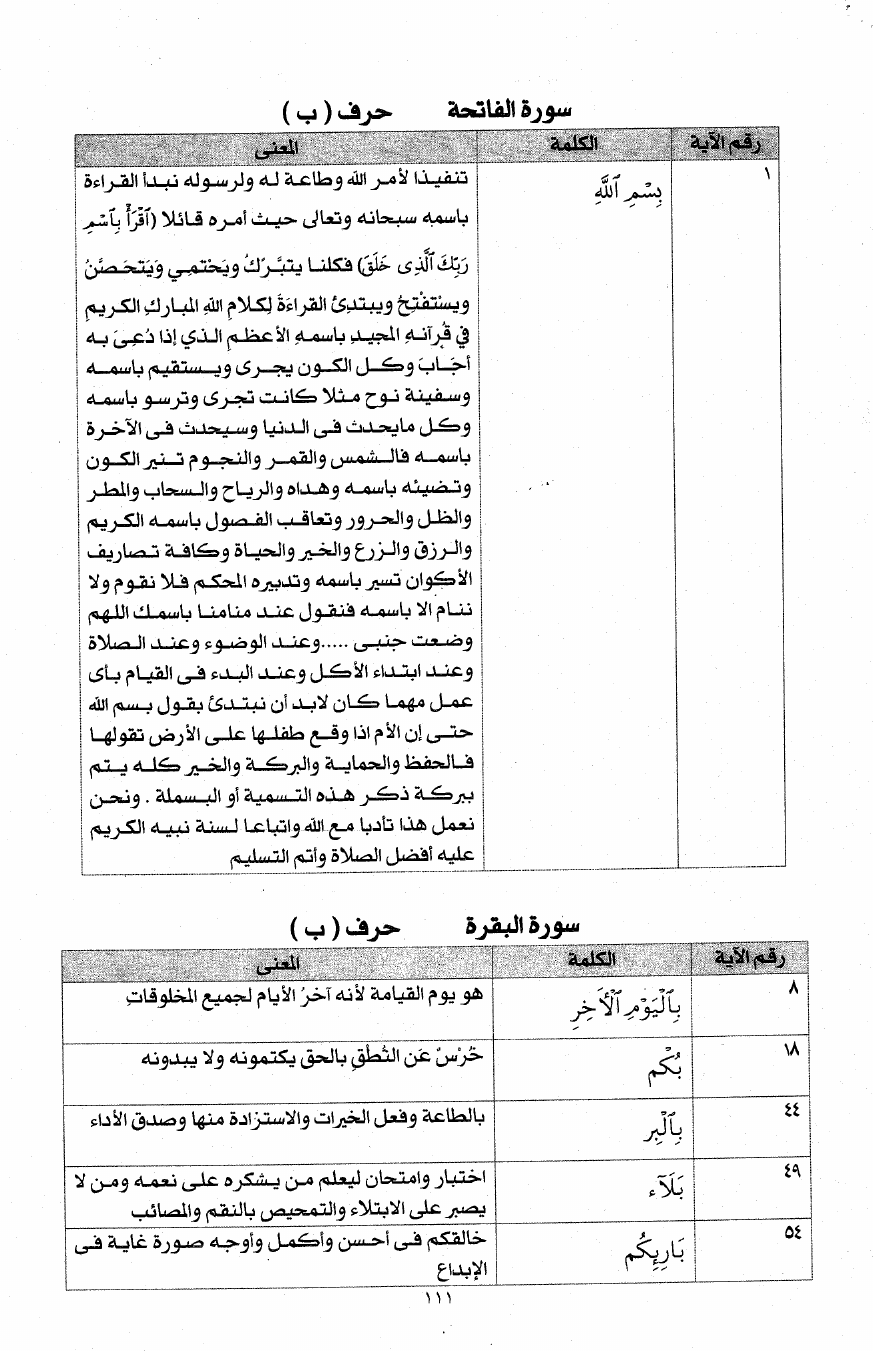 سورة الفاتحة حرف ( ب )
رقم الآية الكلمة المعنى
١ بِسْمِ ٱللَّهِ تنفيذا لأمر الله وطاعة له ولرسوله نبدأ القراءة
باسمه سبحانه وتعالى حيث أمره قائلا (ٱقْرَأْ بِٱسْمِ
رَبِّكَ ٱلَّذِى خَلَقَ) فكلنا يتبَّركُ ويَحْتمِي وَيَتحَصَّنُ
ويسْتفْتِحُ ويبتدِئُ القراءَةَ لِكلامِ اللهِ المبارِكِ الكريمِ
في قُرآنهِ المجيدِ باسمهِ الأعظمِ الذي إذا دُعِىَ به
أجَابَ وكل الكون يجرى ويستقيم باسمه
وسفينة نوح مثلا كانت تجرى وترسو باسمه
وكل مايحدث فى الدنيا وسيحدث فى الآخرة
باسمه فالشمس والقمر والنجوم تنير الكون
وتضيئه باسمه وهداه والرياح والسحاب والمطر
والظل والحرور وتعاقب الفصول باسمه الكريم
والرزق والزرع والخير والحياة وكافة تصاريف
الأكوان تسير باسمه وتدبيره المحكم فلا نقوم ولا
ننام الا باسمه فنقول عند منامنا باسمك اللهم
وضعت جنبى .....وعند الوضوء وعند الصلاة
وعند ابتداء الأكل وعند البدء فى القيام بأى
عمل مهما كان لابد أن نبتدئ بقول بسم الله
حتى إن الأم اذا وقع طفلها على الأرض تقولها
فالحفظ والحماية والبركة والخير كله يتم
ببركة ذكر هذه التسمية أو البسملة . ونحن
نعمل هذا تأدبا مع الله واتباعا لسنة نبيه الكريم
عليه أفضل الصلاة وأتم التسليم
سورة البقرة حرف ( ب )
رقم الآية الكلمة المعنى
٨ بِٱلْيَوْمِ ٱلْأَخِرِ هو يوم القيامة لأنه آخرُ الأيام لجميع المخلوقاتِ
١٨ بُكْم خُرْسٌ عَن النُطقِ بالحق يكتمونه ولا يبدونه
٤٤ بِٱلْبِر بالطاعة وفعل الخيرات والاستزادة منها وصدق الأداء
٤٩ بَلَآء اختبار وامتحان ليعلم من يشكره على نعمه ومن لا
يصبر على الابتلاء والتمحيص بالنقم والمصائب
٥٤ بَارِئِكُم خالقكم فى أحسن وأكمل وأوجه صورة غاية فى
الإبداع
١١١